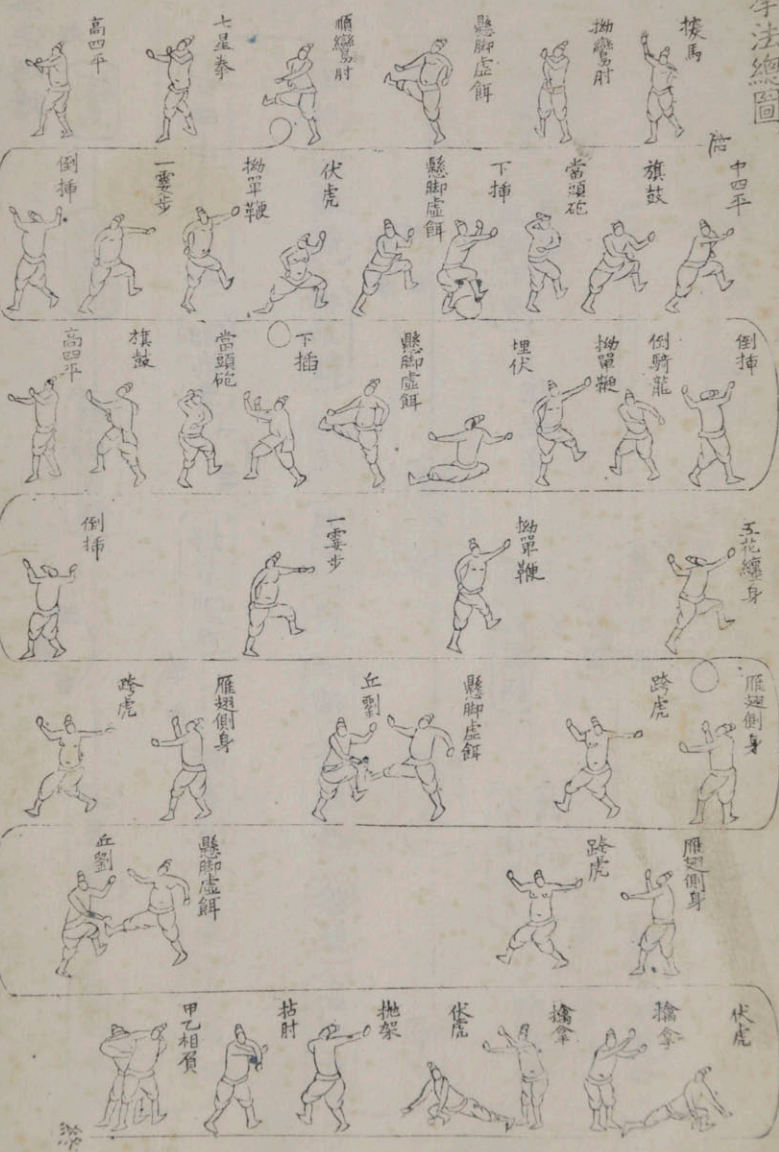 法總圖
探馬
拗鸞肘
懸脚虛餌
順鸞肘
七星拳
高四平
中四平
旗鼓
當頭砲
下揷
懸脚虛餌
伏虎
拗單鞭
一霎步
倒揷
倒揷
倒騎龍
拗單鞭
埋伏
懸脚虛餌
下插
當頭砲
旗鼓
高四平
五花纏身
拗單鞭
一霎步
倒揷
雁翅側身
跨虎
懸脚虛餌
丘劉
雁翅側身
跨虎
雁翅側身
跨虎
懸脚虛餌
丘劉
伏虎
擒拿
擒拿
伏虎
抛架
拈肘
甲乙相負
終